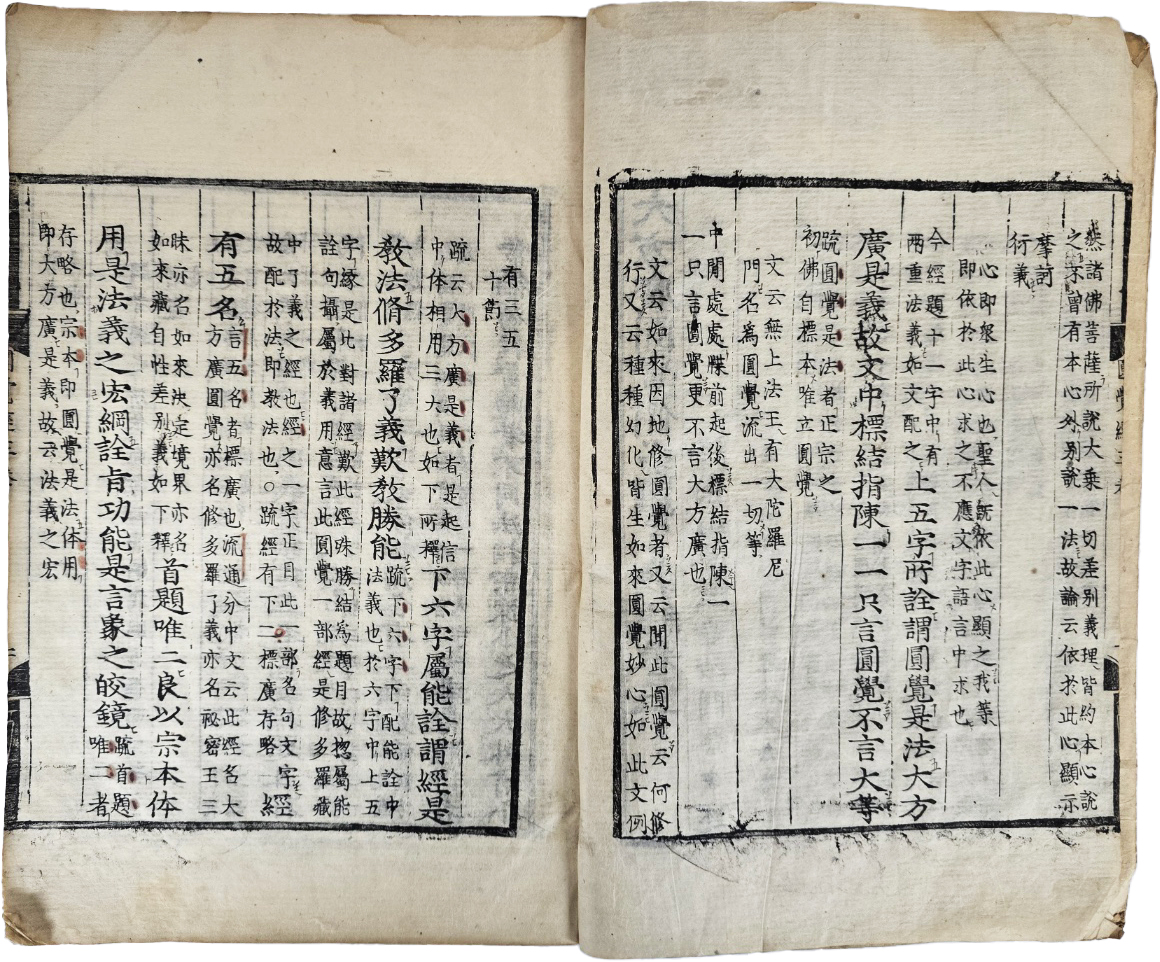 然諸佛菩薩所說大乘一切差别義理皆約本心說
之不曾有本心外别說一法故論云依於此心顯示
摩訶
衍義
心即衆生心也聖人既依此心顯之我等
即依於此心求之不應文字語言中求也
今經題十一字中有
兩重法義如文配之
上五字所詮謂圓覺是法大方
廣是義故文中標結指陳一一只言圓覺不言大等
䟽圓覺是法者正宗之
初佛自標本唯立圓覺
文云無上法王有大陀羅尼
門名爲圓覺流出一切等
中開處處牒前起後標結指陳一
一只言圓覺更不言大方廣也
文云如來因地修圓覺者又云聞此圓覺云何修
行又云種種幻化皆生如來圓覺妙心如此文例
有三五
十節
䟽云大方廣是義者是起信
中体相用三大也如下所釋
下六字屬能詮謂經是
教法脩多羅了義歎教勝能
䟽下六字下配能詮中
法義也於六字中上五
字緣是比對諸經歎此經殊勝結爲題目故揔屬能
詮句攝屬於義用意言此圓覺一部經是修多羅藏
中了義之經也經之一字正目此一部名句文字
故配於法即教法也○䟽經有下二標廣存略
經
有五名
言五名者標廣也流通分中文云此經名大
方廣圓覺亦名修多羅了義亦名祕密王三
昧亦名如來決定境界亦名
如來藏自性差别義如下釋
首題唯二良以宗本体
用是法義之宏綱詮旨功能是言象之皎鏡
䟽首題
唯二者
存略也宗本即圓覺是法体用
即大方廣是義故云法義之宏